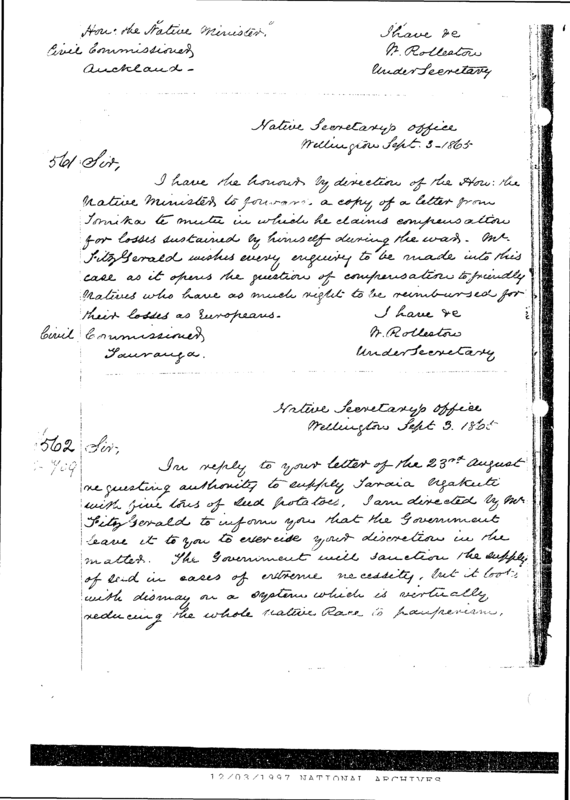 Hon: the "Native Minister." I have &c
Civil Commissioner W. Rolleston
Auckland - Under Secretary
Native Secretary's Office
Wellington Sept. 3 - 1865
561 Sir,
I have the honour by direction of the Hon: the
Native Minister to forward a copy of a letter from
Tomika te mutu in which he claims compensation
for losses sustained by himself during the war. Mr
FitzGerald wishes every enquiry to be made into this
case as it opens the question of compensation to friendly
Natives who have as much right to be reimbursed for
their losses as Europeans. I have &c
Civil Commissioner W. Rolleston
Tauranga. Under Secretary
Native Secretary's Office
Wellington Sept 3. 1865
562 Sir,
709 In reply to your letter of the 23rd August
requesting authority to supply Taraia Ngakuti
with five tons of seed potatoes, I am directed by Mr
FitzGerald to inform you that the Government
leave it to you to exercise your discretion in the
matter. The Government will sanction the supply
of seed in cases of extreme necessity, but it looks
with dismay on a system which is virtually
reducing the whole native Race to pauperism.
12/03/1997 NATIONAL ARCHIVES